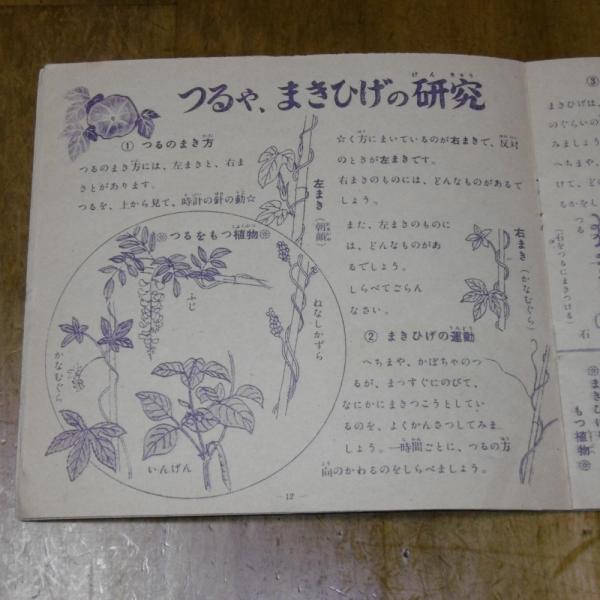 つるや、まきひげの研究
けんきゅう
① つるのまき方
つるのまき方には、左まきと、右ま
きとがあります。
つるを、上から見て、時計の針の動☆
☆く方にまいているのが右まきで、反対
のときが左まきです。
右まきのものには、どんなものがあるで
しょう。
また、左まきのものに
は、どんなものがあ
るでしょう。
しらべてごらん
なさい。
左まき（朝顔）
右まき（かなむぐら）
※つるをもつ植物※
ふじ
ねなしかずら
かなむぐら
いんげん
② まきひげの運動
へちまや、かぼちゃのつ
るが、まっすぐにのびて、
なにかにまきつこうとしてい
るのを、よくかんさつしてみま
しょう。一時間ごとに、つるの方
向のかわるのをしらべましょう。
- 12 -
③
まきひげは、
のぐらいの
みましょう
へちまや、
けて、どの
るかをし
つる
（石をつるにまきつける）
石
※まきひげを
もつ植物※